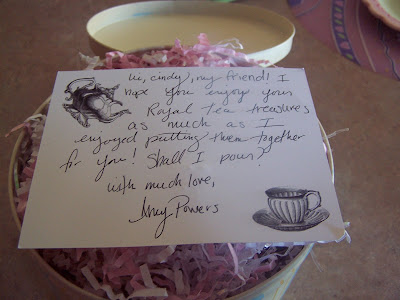 hi, cindy, my friend! I
hope you enjoy your
Royal Tea treasures
as much as I
enjoyed putting them together
for you! Shall I pour?
with much love,
Amy Powers